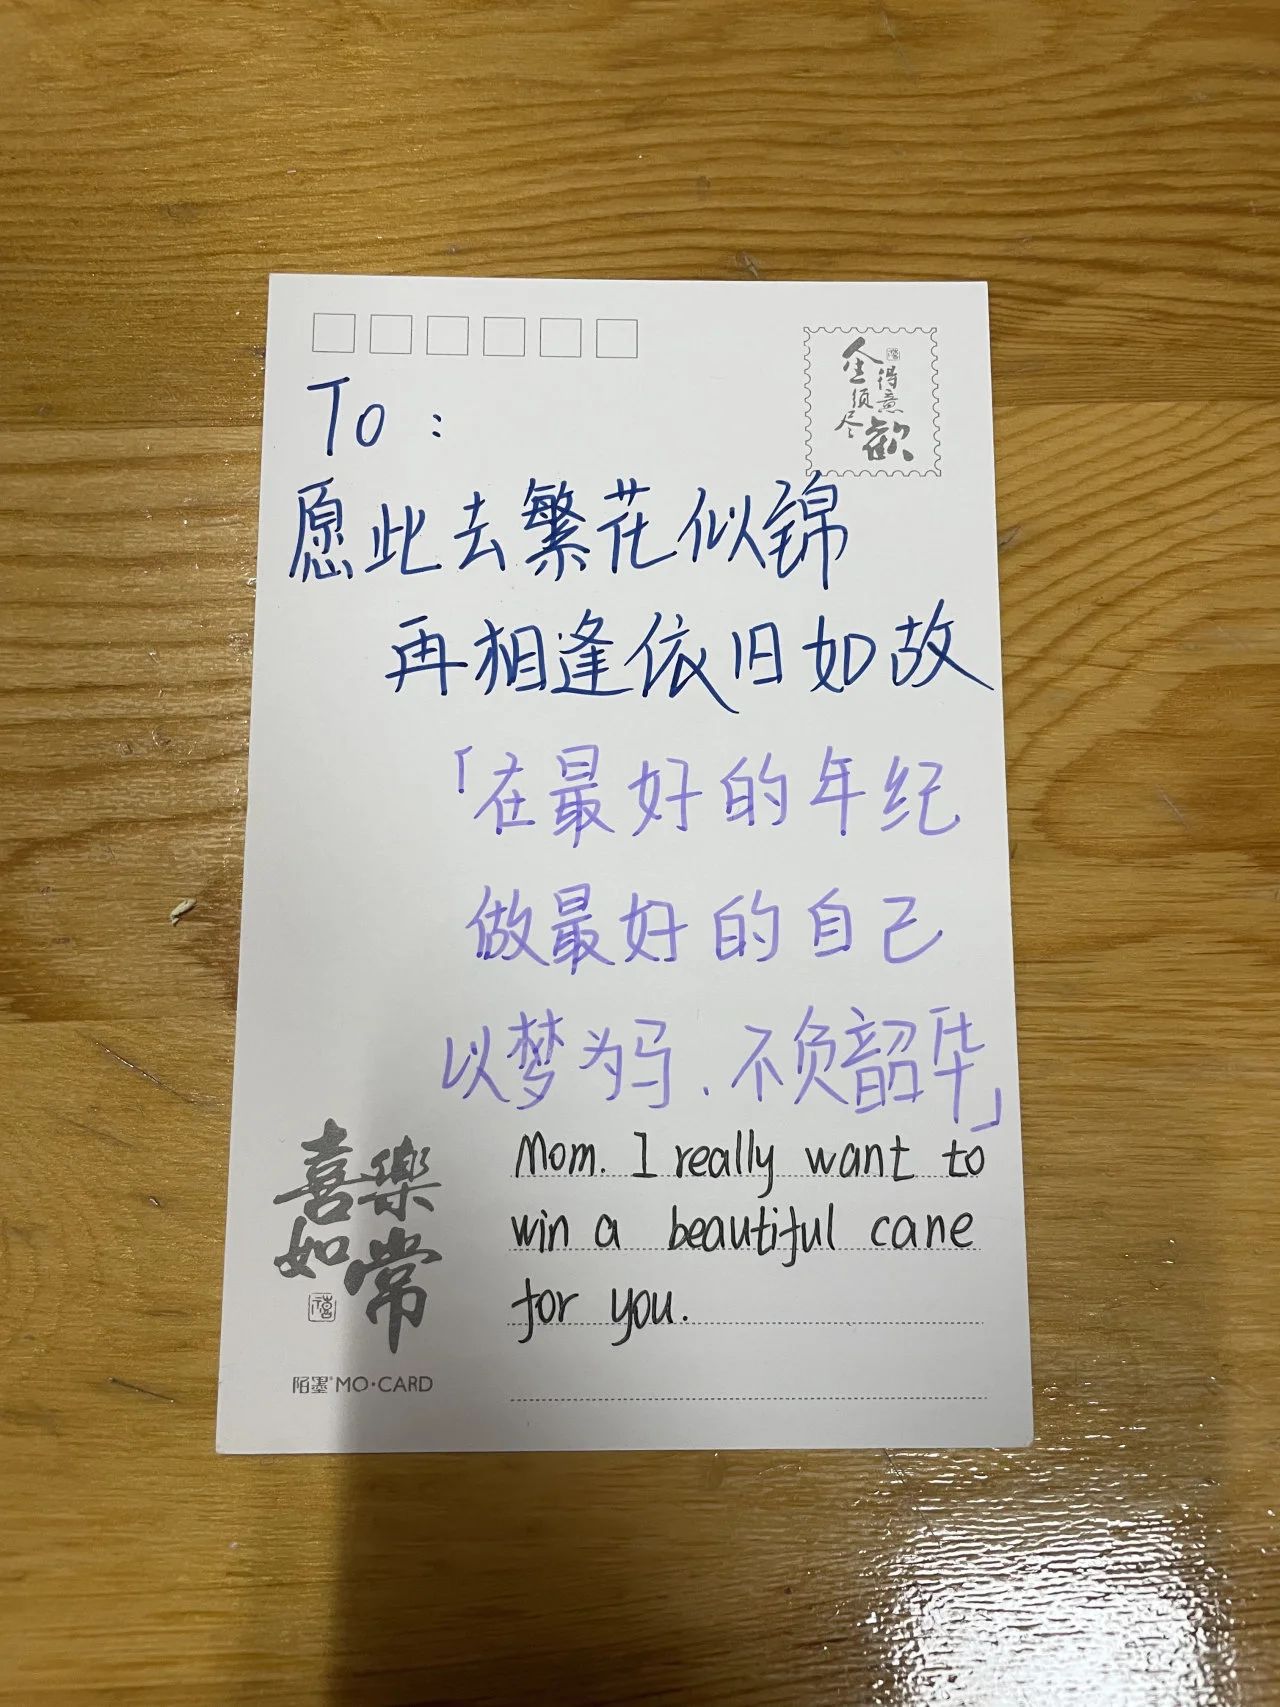 To:
愿此去繁花似锦
再相逢依旧如故
「在最好的年纪
做最好的自己
以梦为马.不负韶华」
Mom. I really want to
win a beautiful cane
for you.
喜樂
如常
禧
陌墨®MO·CARD
全得意
须尽歡